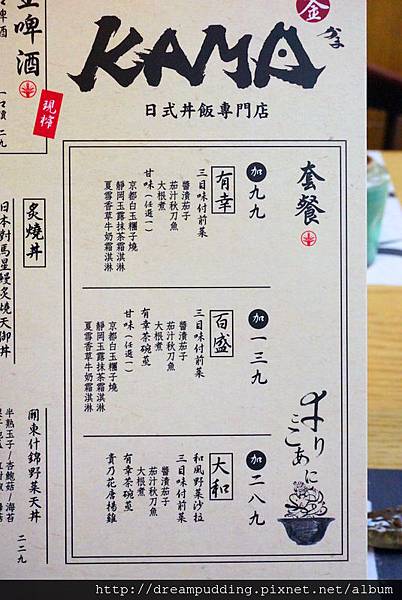 KAMA
日式丼飯專門店
金
啤酒
一口價 二九
現榨
套餐
加九九
有幸
三日味付前菜
醬漬茄子
茄汁秋刀魚
大根煮
甘味（任選一）
京都白玉糰子燒
靜岡玉露抹茶霜淇淋
夏雪香草牛奶霜淇淋
加一三九
百盛
三日味付前菜
醬漬茄子
茄汁秋刀魚
大根煮
有幸茶碗蒸
甘味（任選一）
京都白玉糰子燒
靜岡玉露抹茶霜淇淋
夏雪香草牛奶霜淇淋
加二八九
大和
和風野菜沙拉
三日味付前菜
醬漬茄子
茄汁秋刀魚
大根煮
有幸茶碗蒸
貴乃花唐楊雞
炙燒丼
日本對馬星鰻炙燒天御丼
關東什錦野菜天丼
半熟玉子/杏鮑菇/海苔
二二九
http://dreampudding.pixnet.net/album